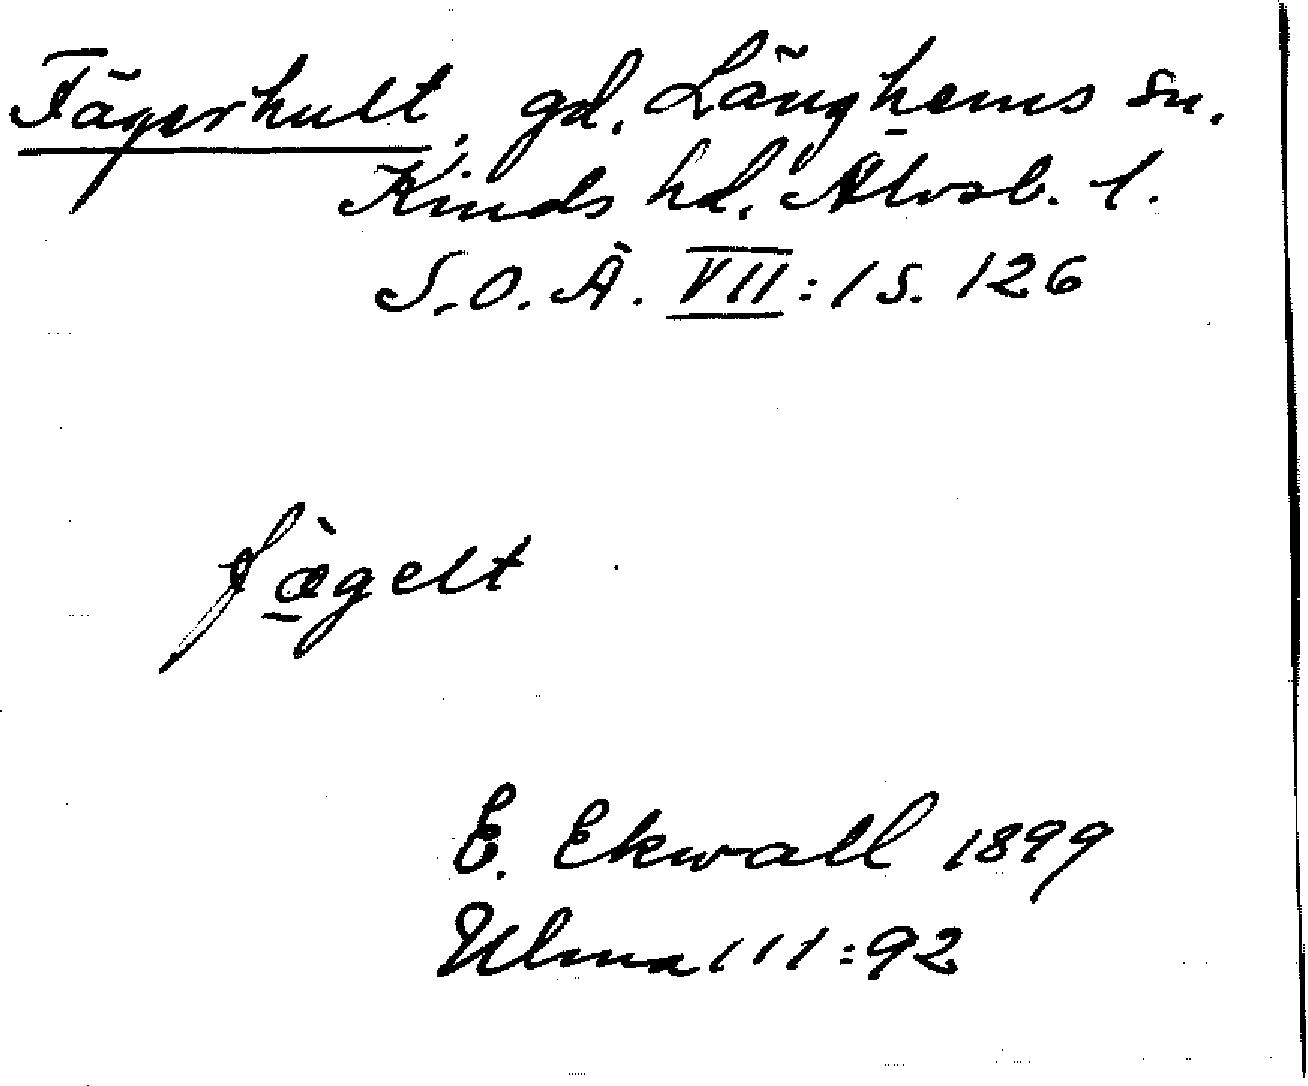 Fägerhult, gd. Länghems sn.
Kinds hd. Älvsb. l.
S.O.Ä. VII:1 s. 126
fæ̀gelt
E. Ekwall 1899
Ulma 111:92